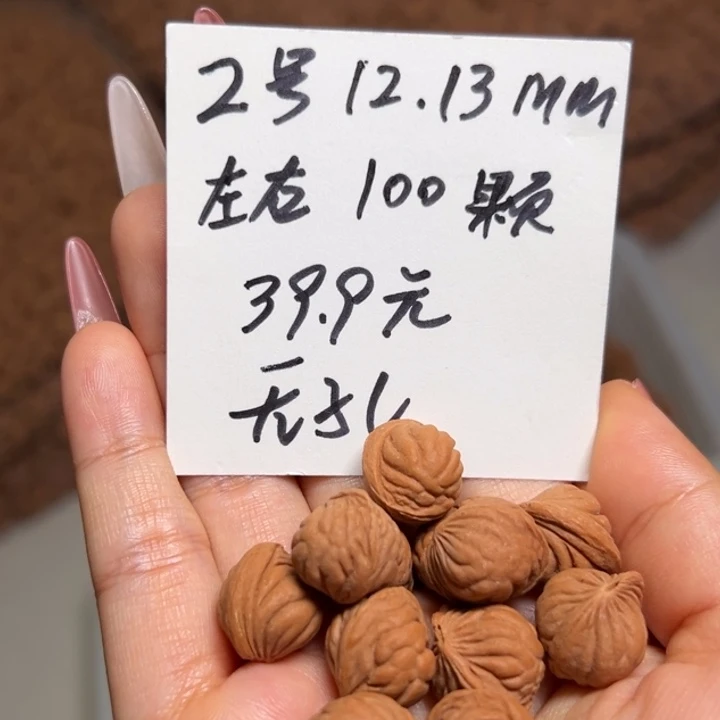 2号 12.13mm
左右 100颗
39.9元
无孔